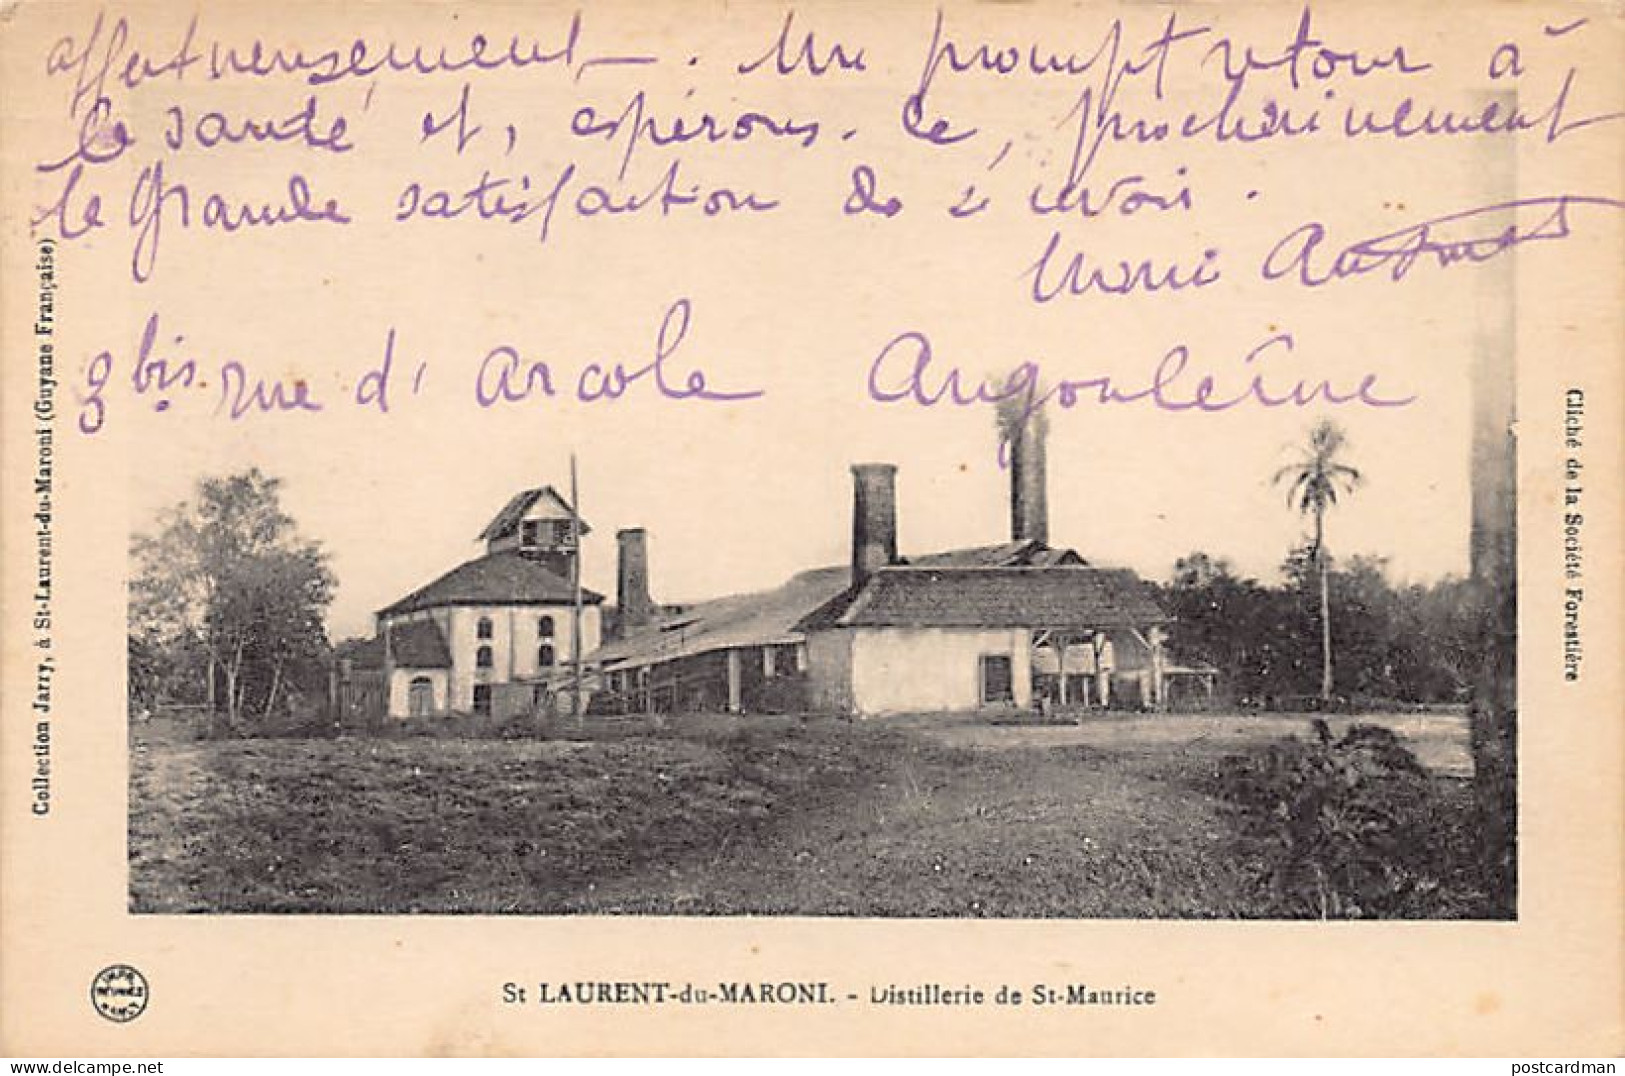 affectueusement. Un prompt retour à
la santé et, espérons-le, prochainement
la grande satisfaction de se revoir.
3 bis rue d'Arcole Angoulême
Collection Jarry, à St-Laurent-du-Maroni (Guyane Française)
Cliché de la Société Forestière
St LAURENT-du-MARONI. - Distillerie de St-Maurice
postcardman